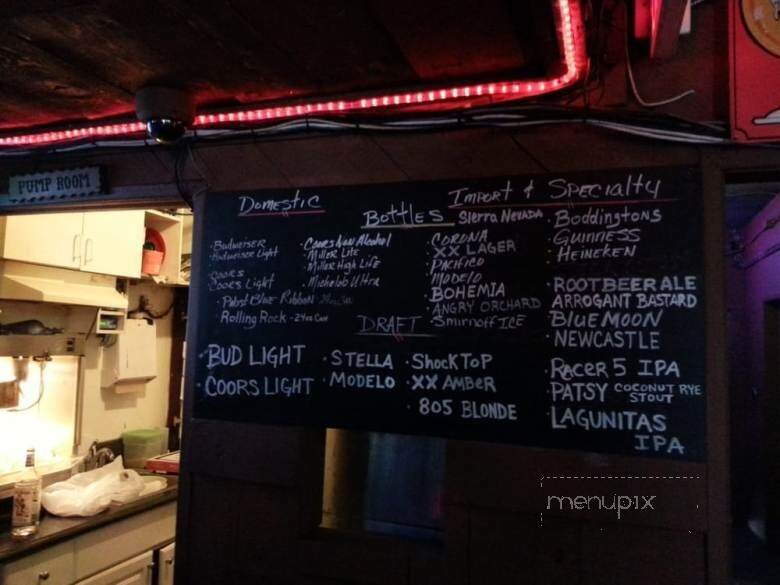 PUMP ROOM
Domestic
Bottles
Import & Specialty
· Budweiser
· Budweiser Light
· Coors
Coors Light
· Pabst Blue Ribbon
· Rolling Rock - 24oz Can
· Coors Non Alcohol
· Miller Lite
· Miller High Life
· Michelob Ultra
Sierra Nevada
· Corona
· XX Lager
· Pacifico
· Modelo
· Bohemia
· Angry Orchard
· Smirnoff Ice
· Boddingtons
· Guinness
· Heineken
· Root Beer Ale
Arrogant Bastard
· Blue Moon
· Newcastle
Draft
· Bud Light
· Coors Light
· Stella
· Modelo
· Shock Top
· XX Amber
· 805 Blonde
· Racer 5 IPA
· Patsy Coconut Rye
Stout
· Lagunitas
IPA
menupix